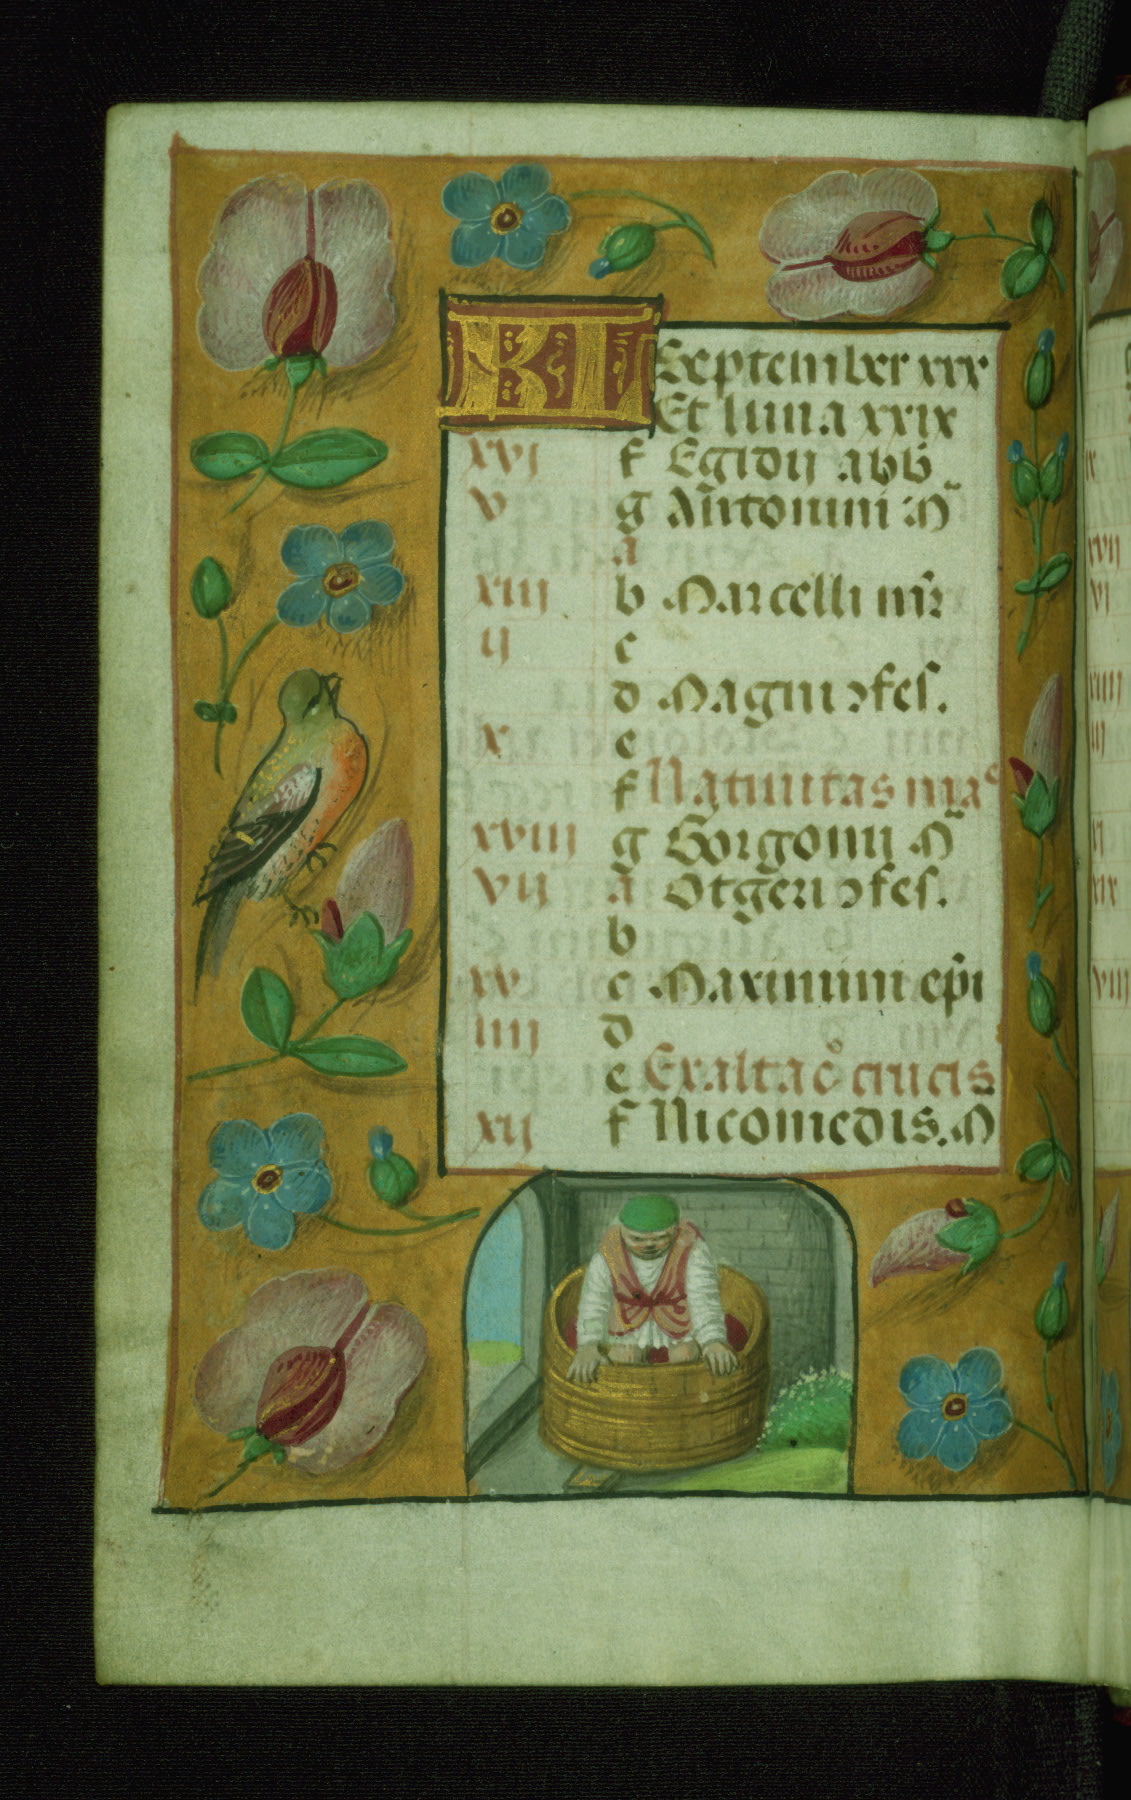 KL Septembr xxx
Et luna xxix
xvj f Egidij abb
v g Antonini M
a
xiij b Marcelli mr
ij c
d Magni ɔfes.
x e
f Natiuitas ma
xviij g Gorgonij M
vij a Otgeri ɔfes.
b
xv c Maximini epi
iiij d
e Exaltacō crucis
xij f Nicomedis. M
xvij
vi
xiij
xix
viij